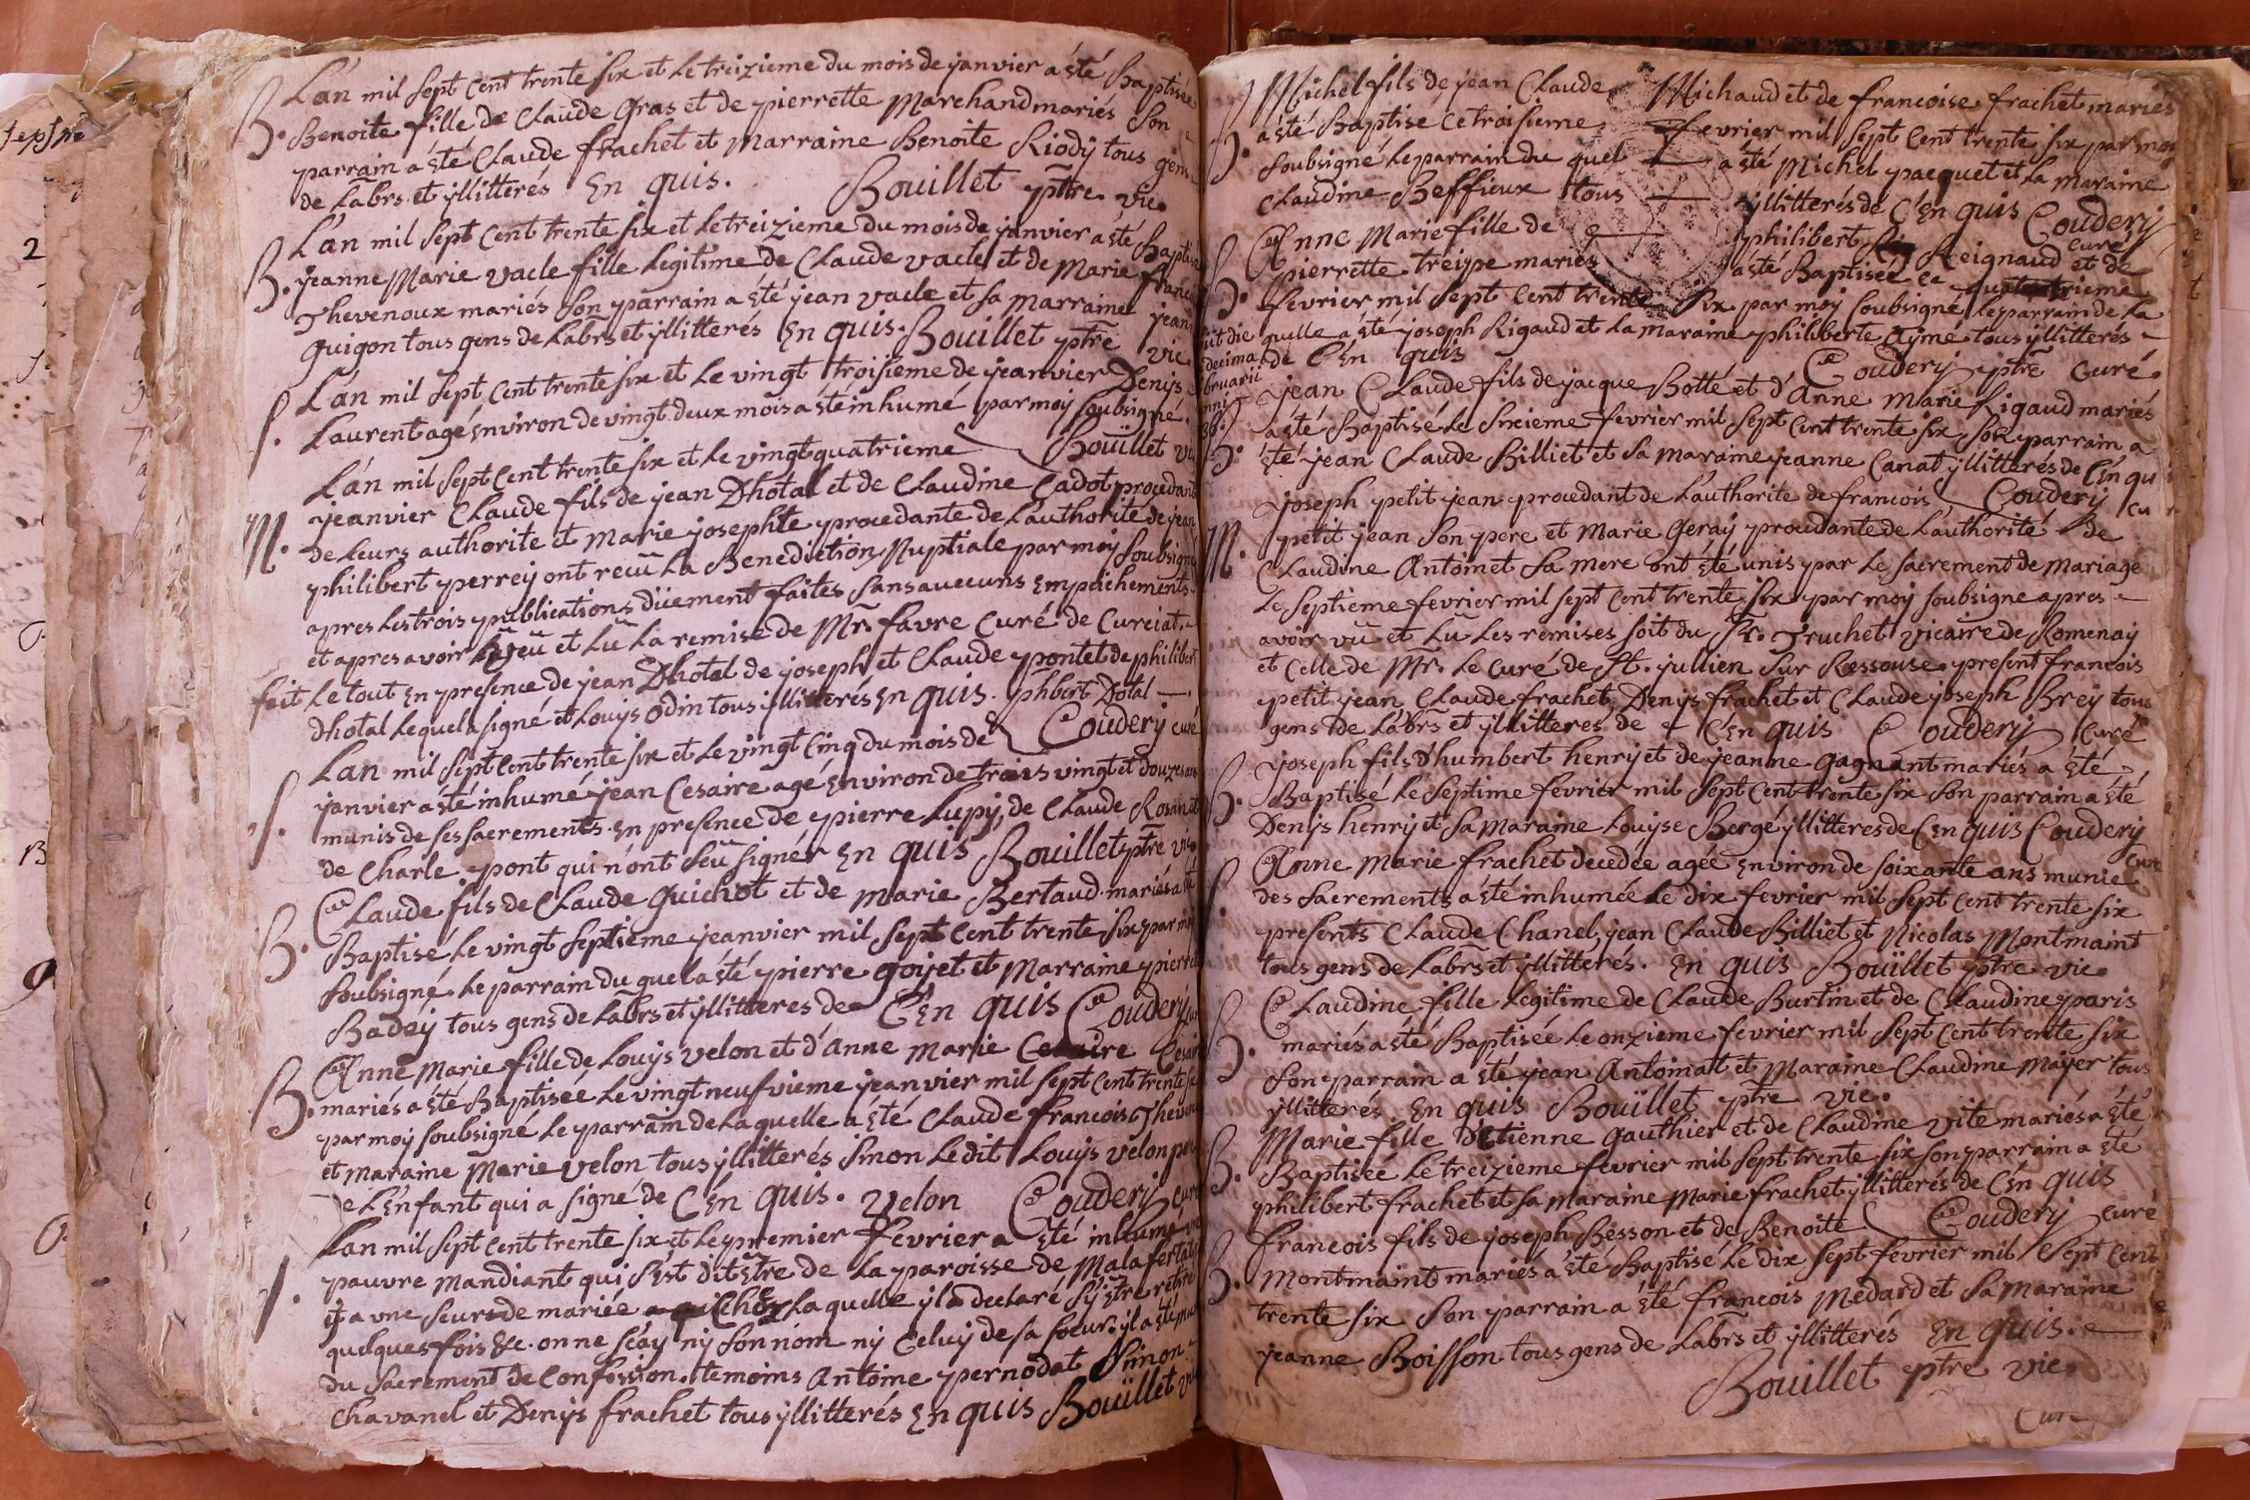 L'an mil sept cent trente six et le treizieme du mois de janvier a été Baptisée
B. Benoite fille de Claude Gras et de pierrette Marchand mariés Son
parrain a été Claude frachet et Marraine Benoite Riody tous gens
de Labrs et yllitterés En quis. Bouillet ptre vic.
L'an mil sept cent trente six et le treizieme du mois de janvier a été Baptisée
B. jeanne Marie vacle fille legitime de Claude vacle et de Marie
Thevenoux mariés Son parrain a été jean vacle et sa marraine
guigon tous gens de Labrs et yllitterés En quis. Bouillet ptre vic
L'an mil sept cent trente six et le vingt troisieme de jeanvier Denys
S. Laurent agé Environ de vingt deux mois a été inhumé par moy soubsigné.
Bouillet vic
L'an mil sept cent trente six et le vingt quatrieme
jeanvier Claude fils de jean Dhotal et de Claudine Cadot procedant
M. de leurs authorite et Marie josephte procedante de L'authorite de jean
philibert perrey ont recu la Benediction Nuptiale par moy soubsigné
apres les trois publications düement faites sans aucuns Empechements
et apres avoir veu et Lu la remise de Mr favre Curé de Curciat
fait Le tout En presence de jean Dhotal de joseph et Claude pontet de philibert
Dhotal Lequel a signé et Louys odin tous illitterés En quis. phbert Dotal
Couderij curé
L'an mil sept cent trente six et le vingt Cinq du mois de
janvier a été inhumé jean Cesaire agé Environ de trois vingt et douze ans
S. munis de ses sacrements En presence de pierre Lupy, de Claude
de Charle pont qui n'ont seu signér En quis Bouillet ptre vic
Claude fils de Claude Guichot et de Marie Bertaud mariés a été
B. Baptisé le vingt septieme jeanvier mil sept cent trente six par moy
soubsigné le parrain du quel a été pierre goyet et Marraine pierrette
Badey tous gens de Labrs et yllitteres de C En quis Couderij
Anne Marie fille de Louys velon et d'Anne Marie Cesaire
B. mariés a été Baptisée Le vingt neufvieme jeanvier mil sept cent trente six
par moy soubsigné le parrain de la quelle a été Claude francois
et maraine Marie velon tous yllitterés sinon Ledit Louys velon pere
de L'Enfant qui a signé de C En quis. Velon Couderij curé
L'an mil sept cent trente six et le premier fevrier a été inhumé un
S. pauvre mandiant qui s'est dit Etre de la paroisse de
y a une seur de mariée la quelle yl a declaré s'y Etre retiré
quelques fois &c. on ne sçay ny son nom ny celuy de sa soeur. yl a été muni
du sacrement de Confession. temoins Antoine pernodat Simon
Chavanel et Denys frachet tous yllitterés En quis Bouillet vic
Michel fils de jean Claude Michaud et de francoise frachet mariés
B. a été Baptisé ce troisieme fevrier mil sept cent trente six par moy
soubsigné le parrain du quel a été Michel pacquet et la maraine
Claudine Beffieux tous yllitterés de C En quis Couderij
curé
Anne Marie fille de philibert Reignaud et de
B. pierrette treippe mariés a été Baptisée ce quatrieme
fevrier mil sept cent trente six par moy soubsigné, le parrain de la
qulle a été joseph Rigaud et la maraine philiberte Aymé tous yllitterés
de C En quis Couderij ptre curé.
jean Claude fils de jacque Botté et d'Anne Marie Rigaud mariés
B. a été Baptisé le Sixieme fevrier mil sept cent trente six, son parrain a
été jean Claude Billiet et sa maraine jeanne Canat yllitterés de C En quis
Couderij cu
joseph petit jean procedant de L'authorite de francois
M. petit jean son pere et Marie Geray procedante de L'authorité de
Claudine Antoinet sa mere ont été unis par le sacrement de mariage
le septieme fevrier mil sept cent trente six par moy soubsigné apres
avoir vû et Lû les remises soit du Sr. Truchet vicaire de Romenay
et celle de Mr. le curé de St. jullien sur Ressouse present francois
petit jean, Claude frachet, Denys frachet et Claude joseph Brey tous
gens de Labrs et yllitteres de C En quis Couderij Curé
joseph fils d'humbert henry et de jeanne gagnant mariés a été
B. Baptisé le septime fevrier mil sept cent trente six son parrain a été
Denys henry et sa maraine Louyse Bergé yllitteres de C En quis Couderij
cure
Anne Marie frachet decedée agée Environ de soixante ans munie
S. des sacrements a été inhumée Le dix fevrier mil sept cent trente six
presents Claude Chanel, jean Claude Billiet et Nicolas Montmaint
tous gens de Labrs et yllitterés. En quis Bouillet ptre vic
Claudine fille legitime de Claude Burtin et de Claudine paris
B. mariés a été Baptisée le onzieme fevrier mil sept cent trente six
son parrain a été jean Antoinat et Maraine Claudine Mayer tous
yllitterés En quis Bouillet ptre vic.
Marie fille d'Etienne Gauthier et de Claudine vite mariés a été
B. Baptisée le treizieme fevrier mil sept trente six son parrain a été
philibert frachet et sa maraine Marie frachet yllitterés de C En quis
Couderij curé
francois fils de joseph Besson et de Benoite
B. Montmaint mariés a été Baptisé le dix sept fevrier mil sept cent
trente six son parrain a été francois Medard et sa maraine
jeanne Boisson tous gens de Labrs et yllitterés En quis.
Bouillet ptre vic.